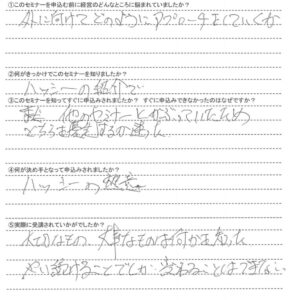 ①このセミナーを申込む前に経営のどんなところに悩まれていましたか?
外に向けてどのようにアプローチをしていくか
②何がきっかけでこのセミナーを知りましたか?
ハッシーの紹介で
③このセミナーを知ってすぐに申込みされましたか? すぐに申込みできなかったのはなぜですか?
他のセミナーとかぶっていたため
どちらを優先するか迷った
④何が決め手となって申込みされましたか?
ハッシーの熱意。
⑤実際に受講されていかがでしたか?
大切なもの、大事なものは何かを知った
やり続けることでしか、変わることはできない